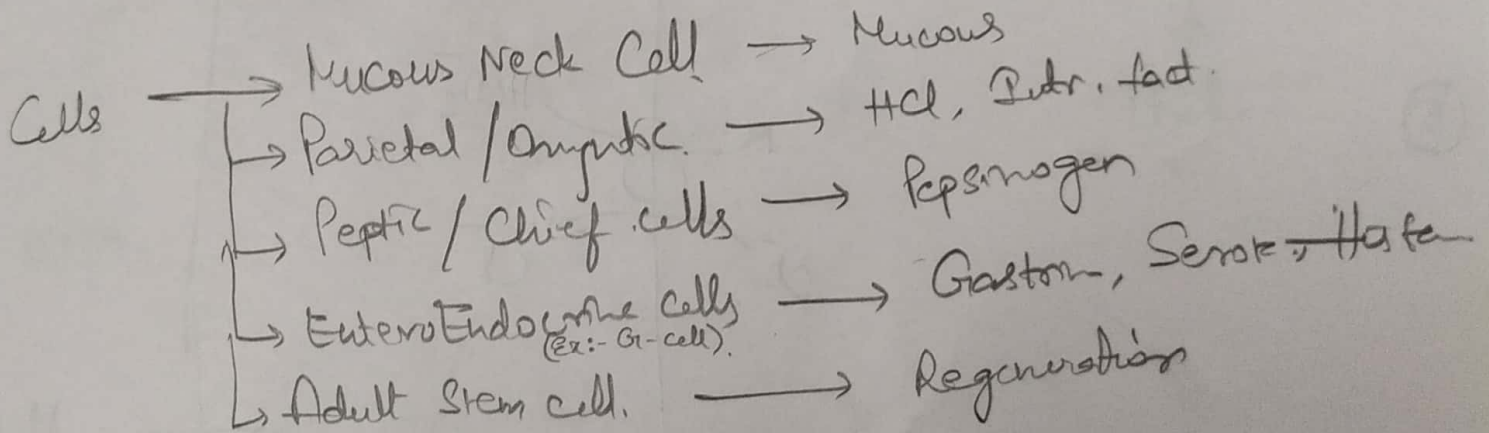 Cells → Mucous Neck Cell → Mucous
→ Parietal / Oxyntic. → HCl, Intr. fact.
→ Peptic / Chief cells → Pepsinogen
→ EnteroEndocrine cells → Gastrin, Serot,
(Ex:- G-cell).
→ Adult Stem cell. → Regeneration